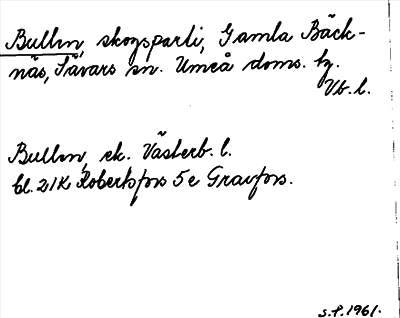 Bullen, skogsparti, Gamla Bäck-
näs, Sävars sn. Umeå doms. hg.
Vb. l.
Bullen, ek. Västerb. l.
bl. 21K Robertsfors 5e Gravfors.
S.F. 1961.